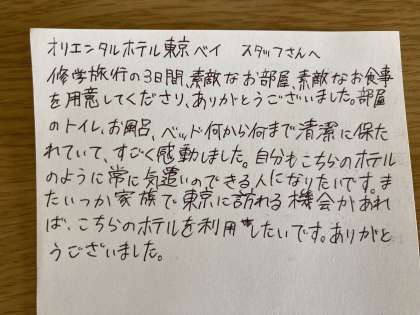 オリエンタルホテル東京ベイ　スタッフさんへ
修学旅行の3日間、素敵なお部屋、素敵なお食事
を用意してくださり、ありがとうございました。部屋
のトイレ、お風呂、ベッド何から何まで清潔に保た
れていて、すごく感動しました。自分もこちらのホテル
のように常に気遣いのできる人になりたいです。ま
たいつか家族で東京に訪れる機会があれ
ば、こちらのホテルを利用したいです。ありがと
うございました。